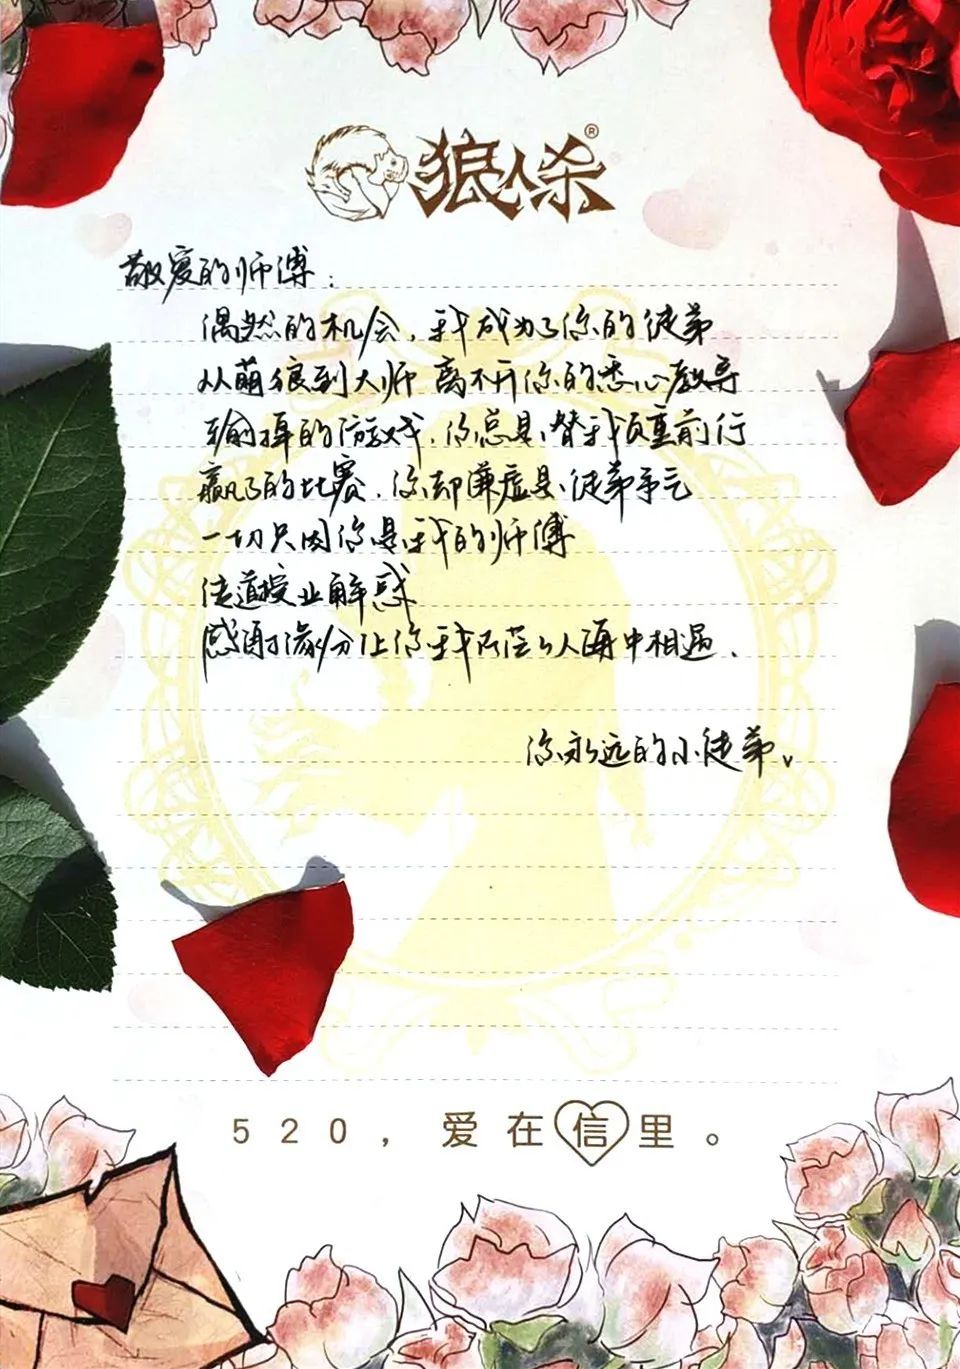 狼人杀®
敬爱的师傅：
偶然的机会，我成为了你的徒弟
从萌狼到大师 离不开你的悉心教导
输掉的游戏，你总是替我负重前行
赢了的比赛，你却谦虚是徒弟争气
一切只因你是我的师傅
传道授业解惑
感酬缘分让你我于茫々人海中相遇.
你永远的小徒弟。
520，爱在信里。